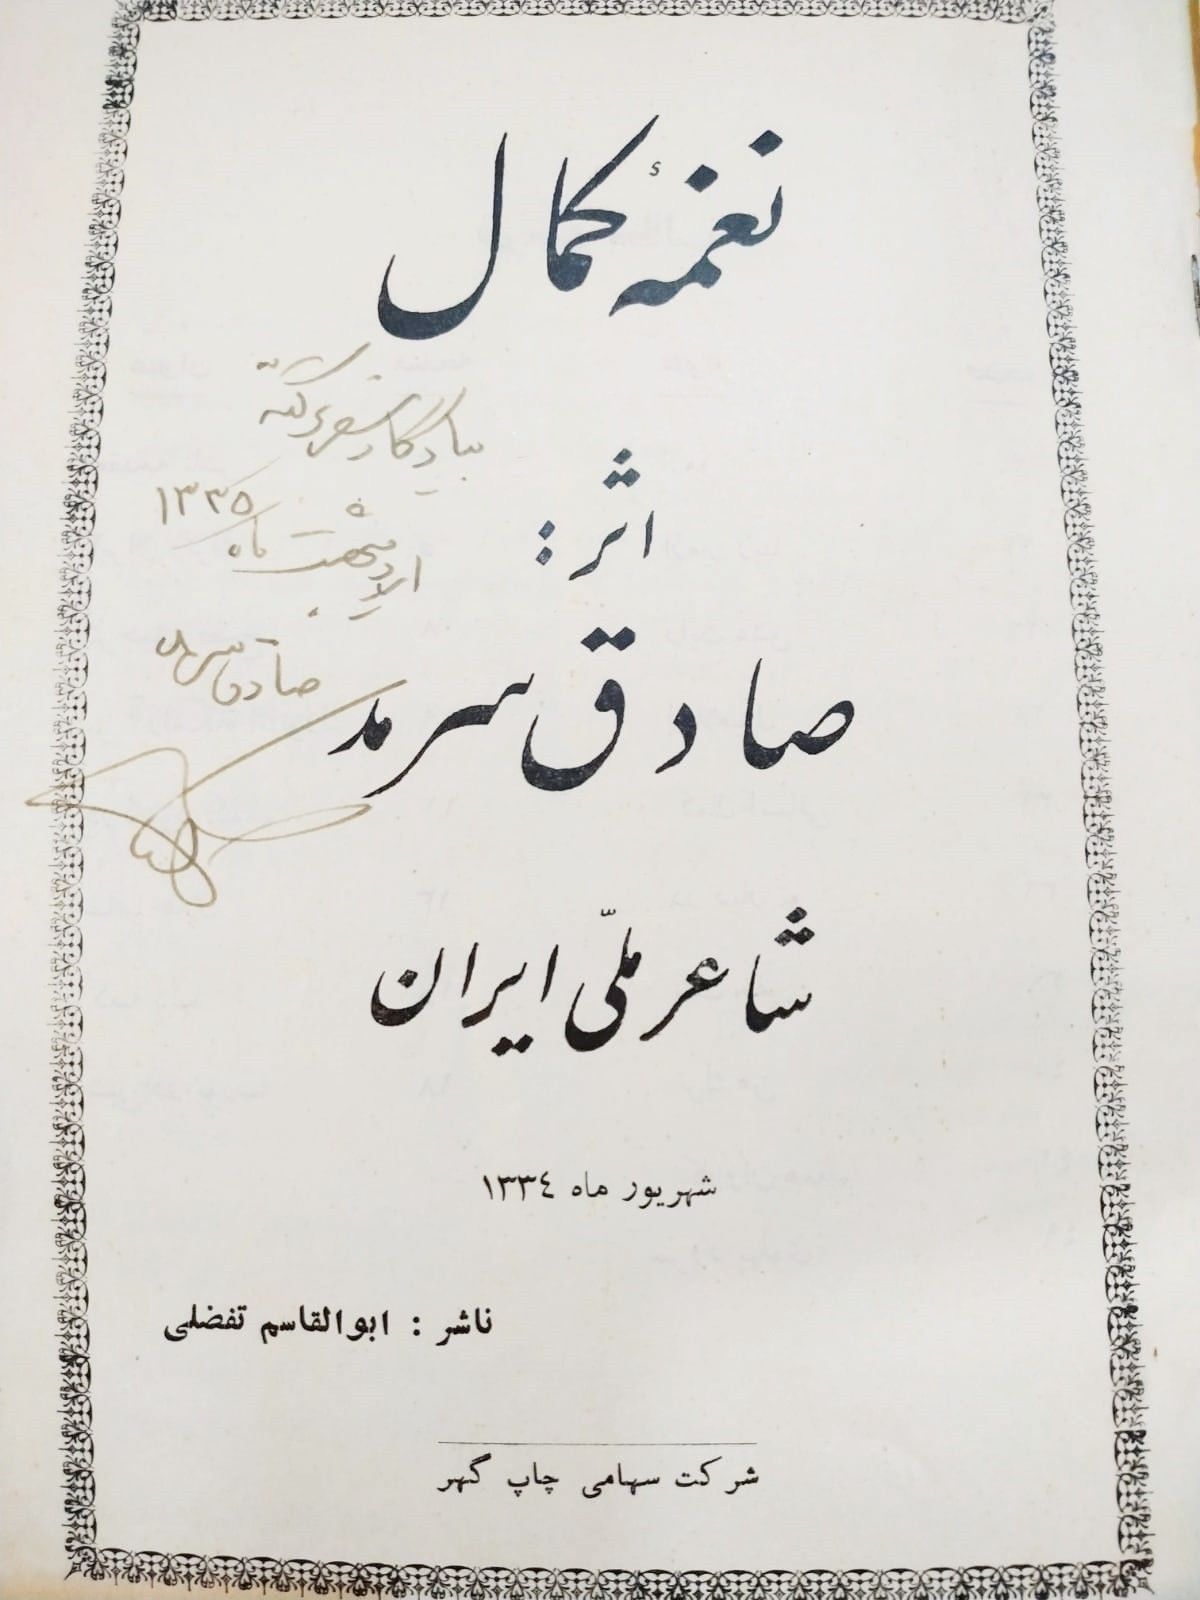 نغمهٔ کمال
بیادگار سفر ترکیه
اردیبهشت ماه ۱۳۳۵
صادق سرمد
اثر :
صادق سرمد
شاعر ملّی ایران
شهریور ماه ۱۳۳٤
ناشر : ابوالقاسم تفضلی
شرکت سهامی چاپ گهر